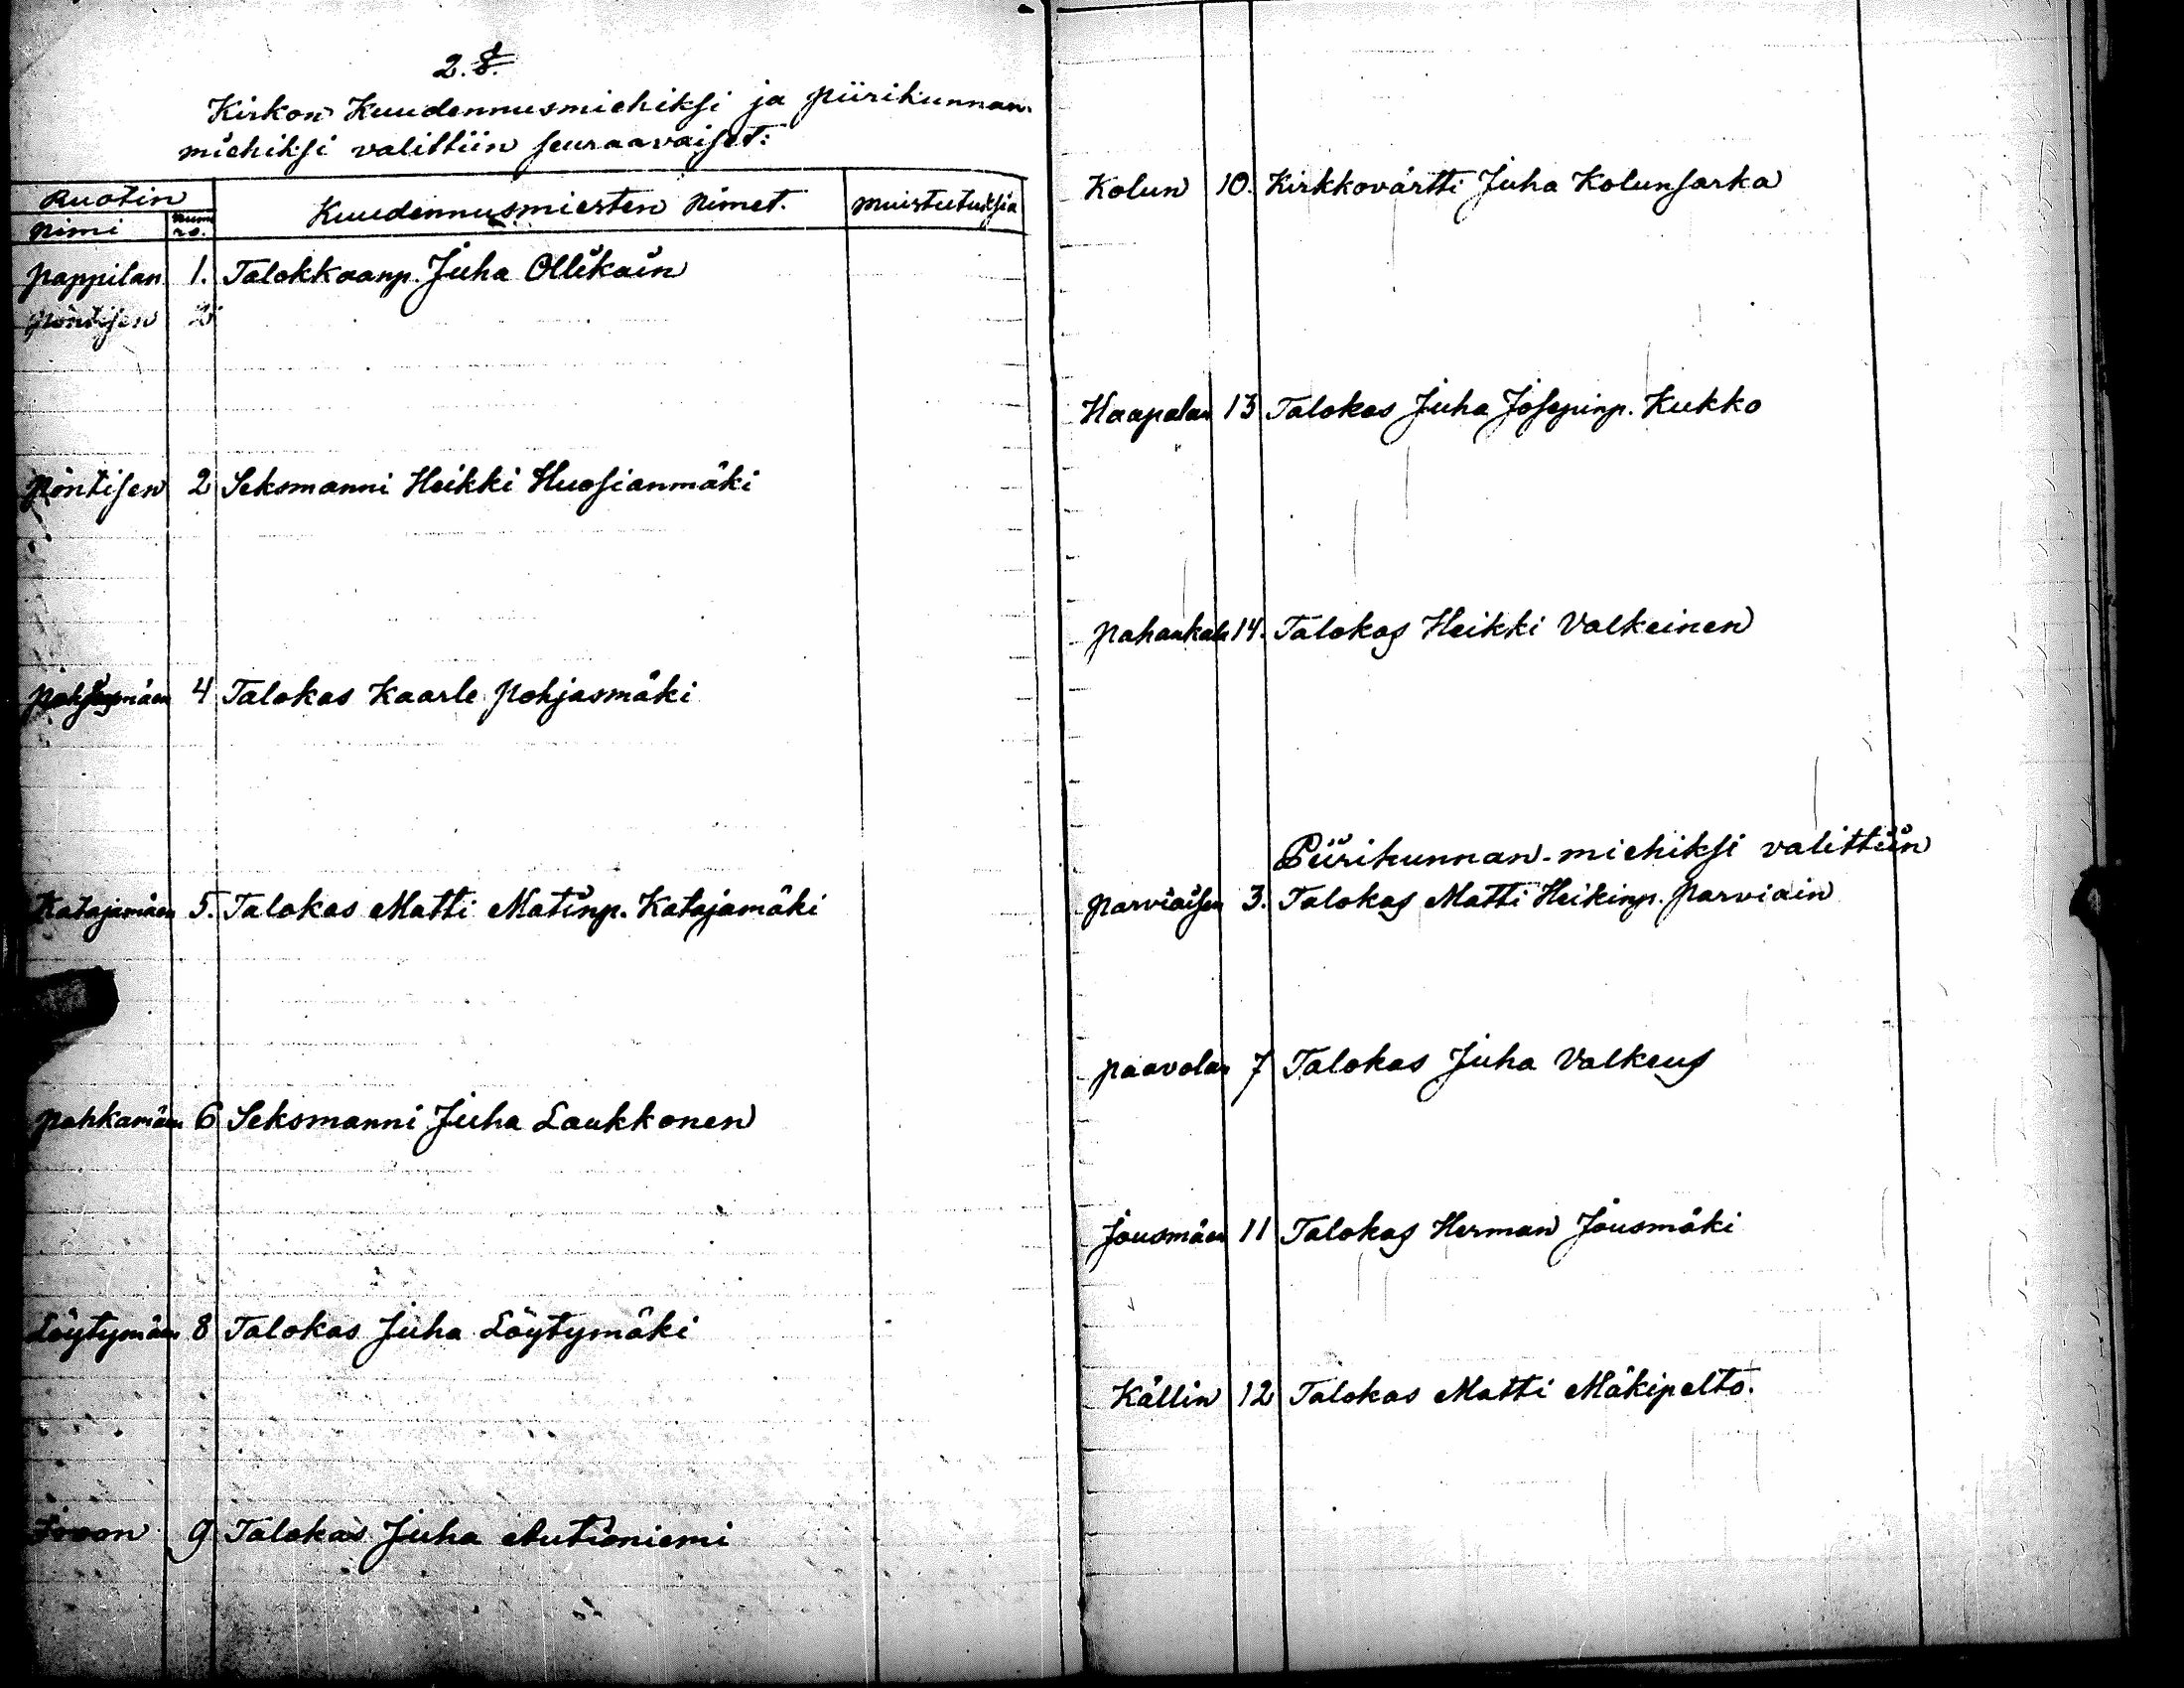 2. §.
Kirkon Kuudennusmiehiksi ja piirikunnan-
miehiksi valittiin seuraavaiset:
Ruotin
nimi
Num
ro.
Kuudennusmiesten Nimet.
Muistutuksia
Pappilan 1. Talokkaanp. Juha Ollikain
Pöntisen 2
Pöntisen 2 Seksmanni Heikki Huosianmäki
Pohjasmäen 4 Talokas Kaarle Pohjasmäki
Katajamäen 5. Talokas Matti Matinp. Katajamäki
Pahkamäen 6 Seksmanni Juha Laukkonen
Löytymäen 8 Talokas Juha Löytymäki
9 Talokas Juha Autioniemi
Kolun 10. Kirkkovärtti Juha Kolunsarka
Haapalan 13 Talokas Juha Josepinp. Kukko
14. Talokas Heikki Valkeinen
Piirikunnan-miehiksi valittiin
Parviaisen 3. Talokas Matti Heikinp. Parviain
Paavolan 7 Talokas Juha Valkeus
Jousmäen 11 Talokas Herman Jousmäki
Källin 12 Talokas Matti Mäkipelto.